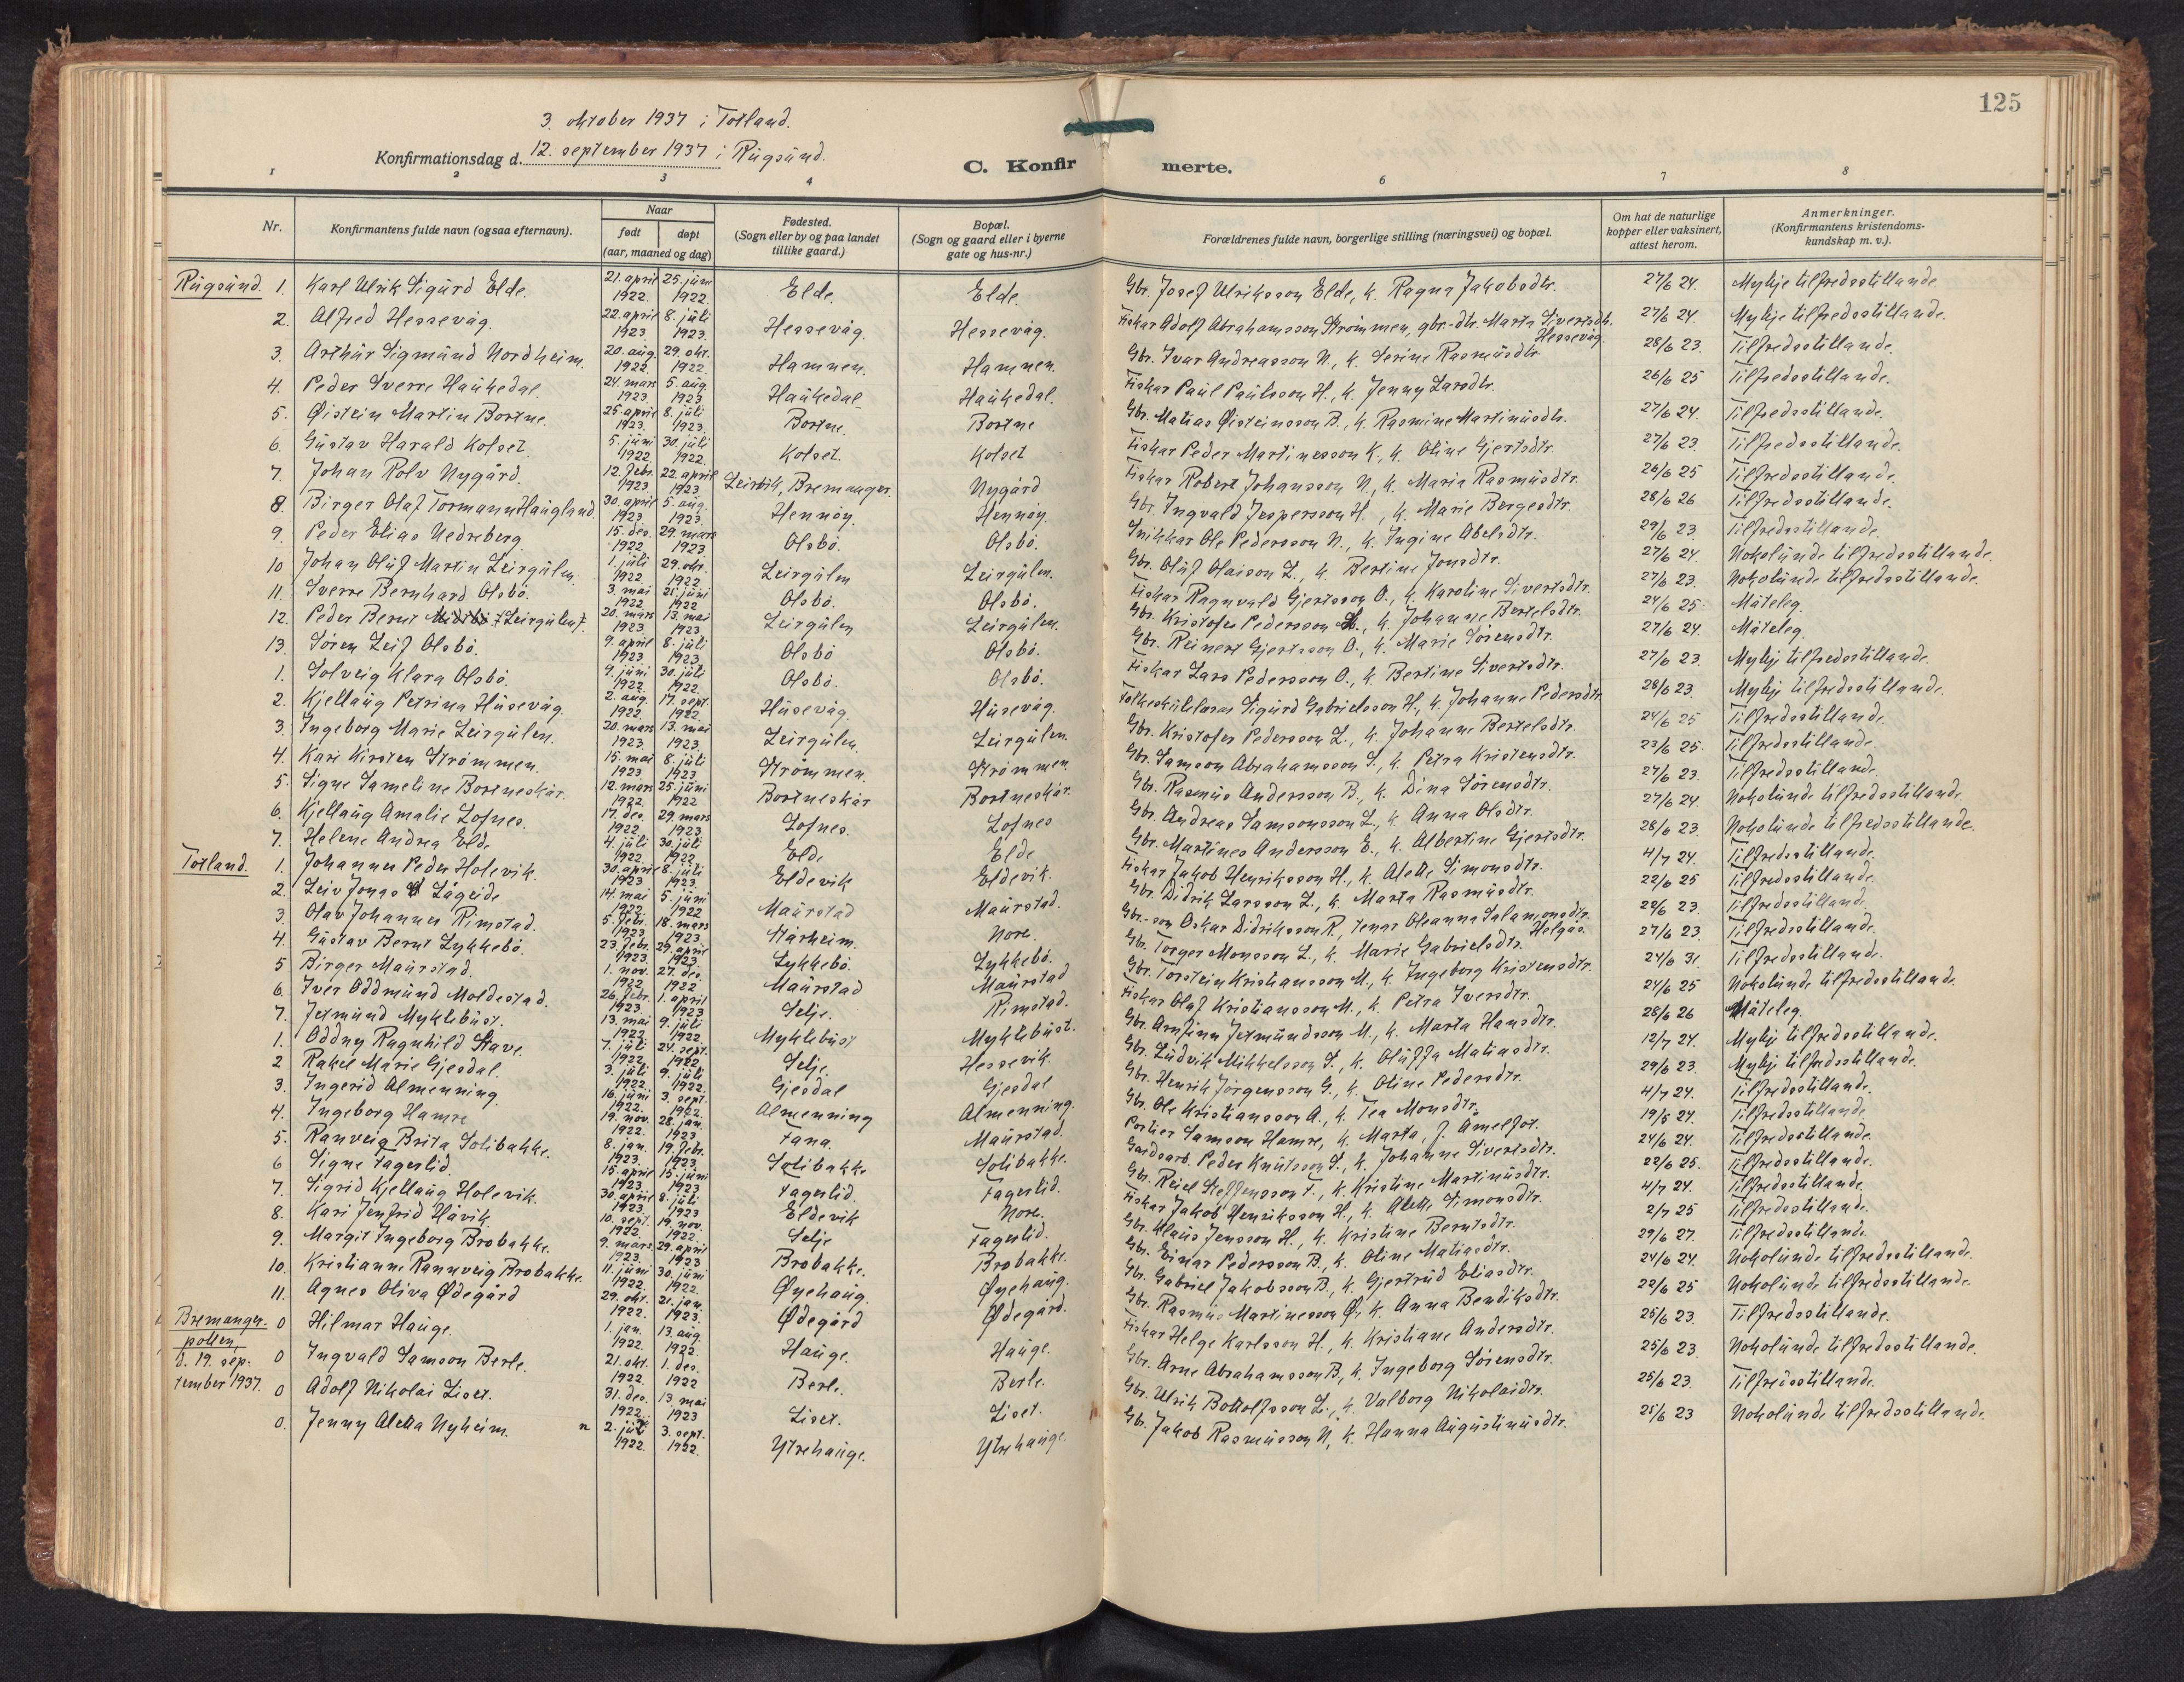 125
3. oktober 1937 i Totland.
Konfirmationsdag d. 12. september 1937 i Rügsünd.
C. Konfirmerte.
1 2 3 4 6 7 8
Nr. Konfirmantens fulde navn (ogsaa efternavn). Naar født døpt (aar, maaned og dag) Fødested. (Sogn eller by og paa landet tillike gaard.) Bopæl. (Sogn og gaard eller i byerne gate og hus-nr.) Forældrenes fulde navn, borgerlige stilling (næringsvei) og bopæl. Om hat de naturlige kopper eller vaksinert, attest herom. Anmerkninger. (Konfirmantens kristendomskundskap m. v.).
Rügsünd. 1. Karl Ulrik Sigürd Elde. 21. april 1922. 25. jüni 1922. Elde. Elde. Gbr. Josef Ulriksson Elde, k. Ragna Jakobsdtr. 27/6 24. Mykje tilfredsstillande.
2. Alfred Hessevåg. 22. april 1923. 8. jüli 1923. Hessevåg. Hessevåg. Fiskar Adolf Abrahamsson Strømmen, gbr.-dtr. Marta Sivertsdtr. Hessevåg. 27/6 24. Mykje tilfredsstillande.
3. Arthür Sigmünd Nordheim. 20. aüg. 1922. 29. okt. 1922. Hamnen. Hamnen. Gbr. Ivar Andreasson N., k. Serine Rasmüsdtr. 28/6 23. Tilfredsstillande.
4. Peder Sverre Haükedal. 24. mars 1923. 5. aüg. 1923 Haükedal. Haükedal. Fiskar Paül Paülsson H., k. Jenny Larsdtr. 26/6 25 Tilfredsstillande.
5. Øistein Martin Bortne. 25. april 1923. 8. jüli 1923. Bortne. Bortne Gbr. Matias Øisteinsson B., k. Rasmine Martinüsdtr. 27/6 24. Tilfredsstillande.
6. Güstav Harald Kolset. 5. jüni 1922. 30. jüli 1922. Kolset. Kolset Fiskar Peder Martinesson K., k. Oline Gjertsdtr. 27/6 23. Tilfredsstillande.
7. Johan Rolv Nygård. 12. febr. 1923 22. april 1923. Leirvik, Bremanger. Nygård Fiskar Robert Johansson N., k. Maria Rasmüsdtr. 26/6 25 Tilfredsstillande.
8. Birger Olaf Tormann Haügland 30. april 1923 5. aüg. 1923. Hennøy. Hennøy. Gbr. Ingvald Jespersson H., k. Marie Bergesdtr. 28/6 26 Tilfredsstillande.
9. Peder Elias Nedreberg 15. des. 1922. 29. mars 1923 Olsbø. Olsbø. Snikkar Ole Pedersson N., k. Ingine Abelsdtr. 29/6 23. Tilfredsstillande.
10 Johan Olüf Martin Leirgülen. 1. jüli 1922 29. okt. 1922 Leirgülen Leirgülen. Gbr. Olüf Olaison L., k. Bertine Jonsdtr. 27/6 24. Nokolünde tilfredsstillande.
11. Sverre Bernhard Olsbø. 3. mai 1922. 25. jüni 1922 Olsbø. Olsbø. Fiskar Ragnvald Gjertsson O., k. Karoline Sivertsdtr. 27/6 23. Nokolünde tilfredsstillande.
12. Peder Bernt (Leirgülen). 20. mars 1923. 13. mai 1923 Leirgülen Leirgülen. Gbr. Kristofer Pedersson L., k. Johanne Bertelsdtr. 24/6 25. Måteleg.
13. Søren Leif Olsbø. 9. april 1923 8. jüli 1923. Olsbø Olsbø. Gbr. Reinert Gjertsson O., k. Marie Sørensdtr. 27/6 24. Måteleg.
1. Solveig Klara Olsbø. 9. jüni 1922. 30. jüli 1922. Olsbø. Olsbø. Fiskar Lars Pedersson O., k. Bertine Sivertsdtr. 27/6 23. Mykje tilfredsstillande.
2. Kjellaüg Petrina Hüsevåg. 2. aüg. 1922. 17. sept. 1922. Hüsevåg. Hüsevåg. Folkeskülelærar Sigürd Gabrielsson H., k. Johanne Pedersdtr. 28/6 23. Mykje tilfredsstillande.
3. Ingeborg Marie Leirgülen. 20. mars 1923. 13. mai 1923. Leirgülen. Leirgülen. Gbr. Kristofer Pedersson L., k. Johanne Bertelsdtr. 24/6 25 Tilfredsstillande.
4. Kari Kirsten Strømmen. 15. mai 1923 8. jüli 1923 Strømmen. Strømmen. Gbr. Samson Abrahamsson S., k. Petra Kristensdtr. 23/6 25. Tilfredsstillande.
5. Signe Sameline Bortneskår. 12. mars 1922. 25. jüni 1922 Bortneskår Bortneskår. Gbr. Rasmüs Andersson B., k. Dina Sørensdtr. 27/6 23. Tilfredsstillande.
6. Kjellaüg Amalie Lofnes. 17. des. 1922. 29. mars 1923. Lofnes. Lofnes Gbr. Andreas Samsonsson L., k. Anna Olsdtr. 27/6 24. Nokolünde tilfredsstillande.
7. Helene Andrea Elde 4. jüli 1922. 30. jüli 1922. Elde Elde Gbr. Martines Andersson E., k. Albertine Gjertsdtr. 28/6 23. Nokolünde tilfredsstillande.
Totland. 1. Johannes Peder Holevik. 30. april 1923 8. jüli 1923. Eldevik Eldevik. Fiskar Jakob Henriksson H., k. Alette Simonsdtr. 4/7 24. Tilfredsstillande.
2. Leiv Jonas Lågeide 14. mai 1922. 5. jüni 1922 Maürstad Maürstad. Gbr. Didrik Larsson L., k. Marta Rasmüsdtr. 22/6 25 Tilfredsstillande.
3. Olav Johannes Rimstad. 5. febr. 1923. 18. mars 1923 Stårheim. Nore. Gbr.-son Oskar Didriksson R, tenar Oleanna Salamonsdtr. Helgås. 29/6 23. Tilfredsstillande.
4. Güstav Bernt Lykkebø. 23. febr. 1923. 29. april 1923 Lykkebø. Lykkebø. Gbr. Torger Monsson L., k. Marie Gabrielsdtr. 27/6 23. Tilfredsstillande.
5 Birger Maürstad. 1. nov. 1922 27. des. 1922 Maürstad Maürstad Gbr. Torstein Kristiansson M., k. Ingeborg Kristensdtr. 24/6 31. Tilfredsstillande.
6. Iver Oddmünd Moldestad. 26. febr. 1923. 1. april 1923 Selje. Rimstad. Fiskar Olaf Kristiansson M., k. Petra Iversdtr. 24/6 25 Nokolünde tilfredsstillande.
7. Jetmünd Myklebüst. 13. mai 1922 9. jüli 1922 Myklebüst Myklebüst. Gbr. Arnfinn Jetmündsson M., k. Marta Hansdtr. 28/6 26 Måteleg.
1. Oddny Ragnhild Stave. 7. jüli 1922. 24. sept. 1922 Selje. Hessevik. Gbr. Lüdvik Mikkelsson S., k. Olüffa Matiasdtr. 12/7 24. Mykje tilfredsstillande.
2 Rakel Marie Gjesdal. 3. jüli 1922. 9. jüli 1922. Gjesdal Gjesdal Gbr. Henrik Jørgensson G., k. Oline Pedersdtr. 29/6 23. Mykje tilfredsstillande.
3. Ingerid Almenning. 16. jüni 1922. 3. sept. 1922. Almenning Almenning. Gbr. Ole Kristiansson A., k. Tea Monsdtr. 4/7 24. Tilfredsstillande.
4. Ingeborg Hamre 19. nov. 1922. 28. jan. 1923 Fana. Maürstad. Portier Samson Hamre, k. Marta, f. Åmelfot. 19/5 24. Tilfredsstillande.
5. Ranveig Brita Solibakke. 8. jan. 1923. 19. febr. 1923. Solibakke Solibakke. Gardsarb. Peder Knütsson S., k. Johanne Sivertsdtr. 24/6 24. Tilfredsstillande.
6 Signe Fagerlid. 15. april 1923 15. jüni 1923 Fagerlid. Fagerlid. Gbr. Reiel Steffensson F., k. Kristine Martinüsdtr. 22/6 25. Tilfredsstillande.
7. Sigrid Kjellaüg Holevik. 30. april 1923. 8. jüli 1923 Eldevik Nore. Fiskar Jakob Henriksson H., k. Alette Simonsdtr. 4/7 24. Tilfredsstillande.
8. Kari Jenfrid Håvik. 10. sept. 1922 19. nov. 1922. Selje Fagerlid. Gbr. Klaüs Jensson H., k. Kristine Berntsdtr. 2/7 25 Tilfredsstillande.
9. Margit Ingeborg Brobakke. 9. mars 1923. 29. april 1923 Brobakke. Brobakke. Gbr. Einar Pedersson B., k. Oline Matiasdtr. 29/6 27. Tilfredsstillande.
10. Kristianne Rannveig Brobakke. 11. jüni 1922 30. jüni 1922. Øyehaüg. Øyehaüg. Gbr. Gabriel Jakobsson B., k. Gjertrüd Eliasdtr. 24/6 24. Nokolünde tilfredsstillande.
11. Agnes Oliva Ødegård 29. okt. 1922. 21. jan. 1923. Ødegård Ødegård. Gbr. Rasmüs Martinesson Ø., k. Anna Bendiksdtr. 22/6 25 Nokolünde tilfredsstillande.
Bremangerpollen, d. 19. september 1937. 0 Hilmar Haüge. 1. jan. 1922. 13. aüg. 1922. Haüge. Haüge. Fiskar Helge Karlsson H., k. Kristiane Andersdtr. 25/6 23. Tilfredsstillande.
0 Ingvald Samson Berle. 21. okt. 1922. 1. des. 1922 Berle. Berle. Gbr. Arne Abrahamsson B., k. Ingeborg Sørensdtr. 25/6 23. Nokolünde tilfredsstillande.
0 Adolf Nikolai Liset. 31. des. 1922. 13. mai 1923 Liset. Liset. Gbr. Ulrik Bottolfsson L., k. Valborg Nikolaidtr. 25/6 23. Tilfredsstillande.
0. Jenny Aletta Nyheim. 2. jüli 1922. 3. sept. 1922. Ytrehaüge. Ytrehaüge. Gb. Jakob Rasmüsson N, k. Hanna Aügüstinüsdtr. 25/6 23 Nokolünde tilfredsstillande.